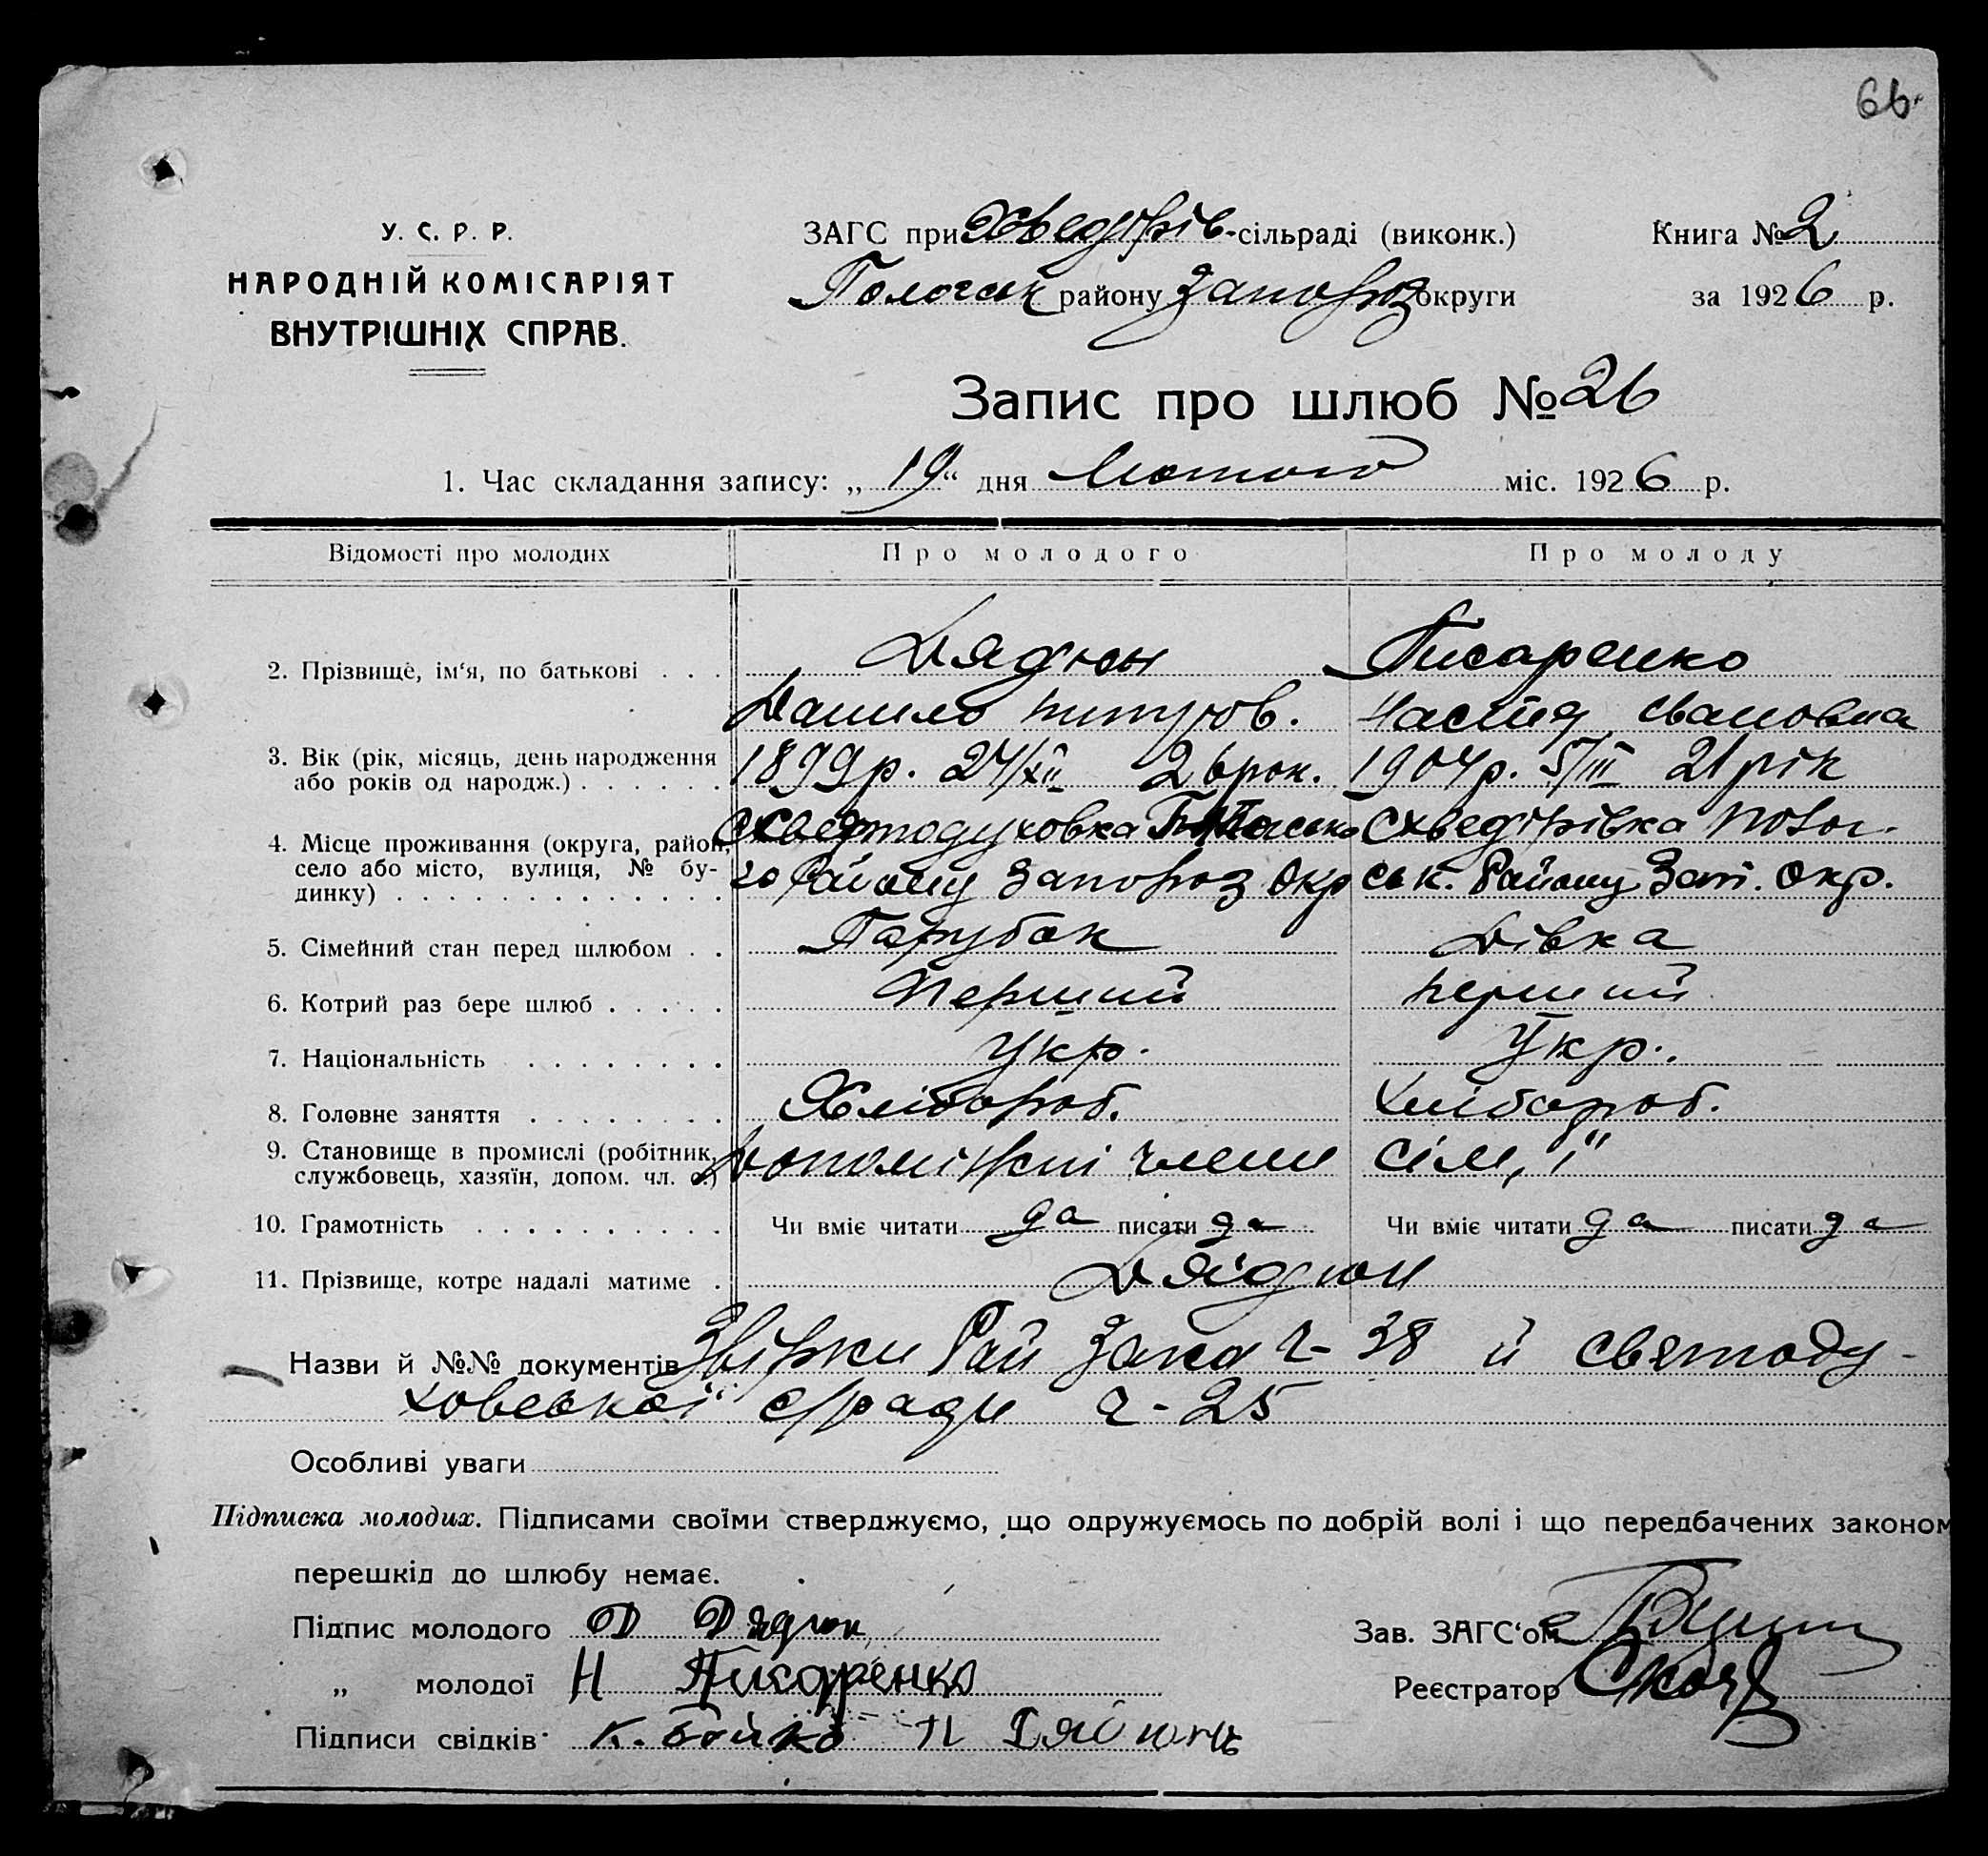 66
У. С. Р. Р.
НАРОДНІЙ КОМІСАРІЯТ
ВНУТРІШНІХ СПРАВ.
ЗАГС при Хведорів-сільраді (виконк.) Книга № 2
Пологськ району Запороз округи за 1926 р.
Запис про шлюб № 26
1. Час складання запису: „19“ дня Лютого міс. 1926 р.
Відомості про молодих Про молодого Про молоду
2. Прізвище, ім‘я, по батькові . . . Дядюн Писаренко
Данило Настя Івановна
3. Вік (рік, місяць, день народження 1899р. 24/XII 26рок. 1904р. 5/III 21 рік
або років од народж.) . . . . . .
4. Місце проживання (округа, район, Святодуховка Пологсько С Хведірівка Полог-
село або місто, вулиця, № бу- го Району Запороз Окр ськ. Району Зап. Окр.
динку) . . . . . . . . . . . . .
5. Сімейний стан перед шлюбом . . Парубок Дівка
6. Котрий раз бере шлюб . . . . . Перший перший
7. Національність . . . . . . . . Укр. Укр.
8. Головне заняття . . . . . . . . Хлібороб. Хлібороб.
9. Становище в промислі (робітник, Допоміжні члени сім,ї
службовець, хазяїн, допом. чл. с.)
10. Грамотність . . . . . . . . . . Чи вміє читати да писати да Чи вміє читати да писати да
11. Прізвище, котре надалі матиме . Дядюн
Назви й №№ документів Рай Загса ч- 38 й Святоду-
ховської с/ради ч-25
Особливі уваги
Підписка молодих. Підписами своїми стверджуємо, що одружуємось по добрій волі і що передбачених законом
перешкід до шлюбу немає.
Підпис молодого Д Дядюн Зав. ЗАГС‘ом
„ молодої Н Писаренко Реєстратор
Підписи свідків К. Бойко П